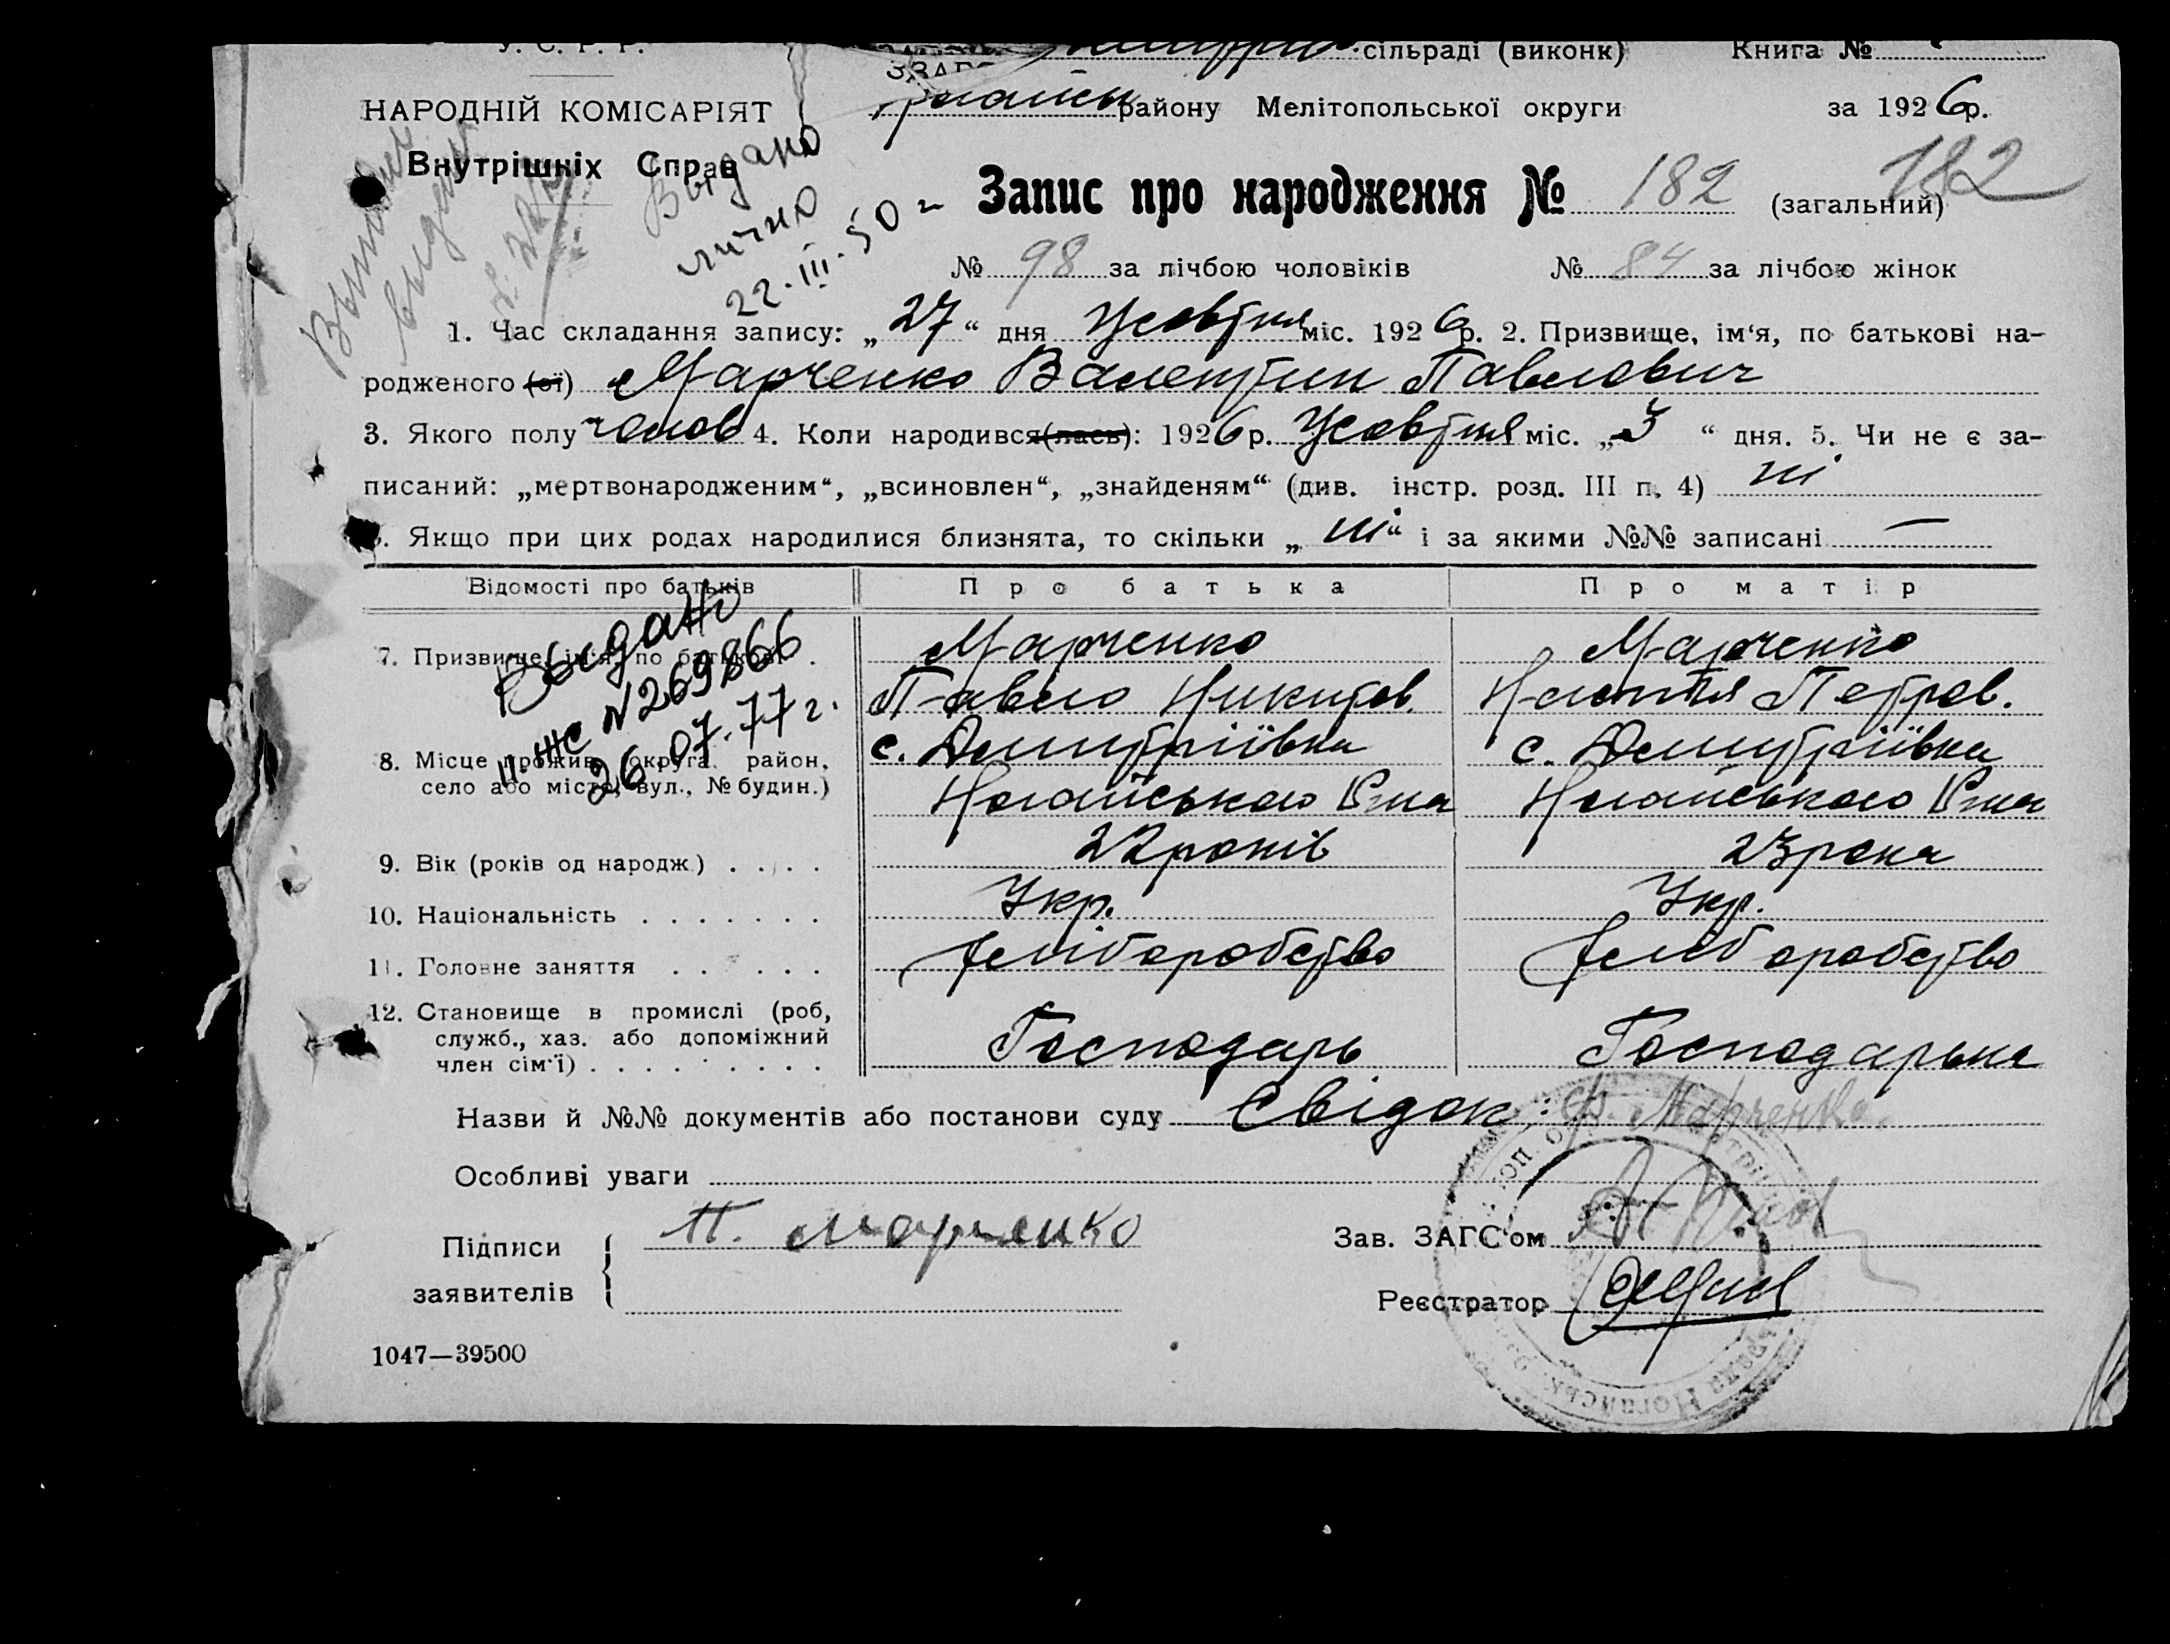 У. С. Р. Р.
сільраді (виконк) Книга №
НАРОДНІЙ КОМІСАРІЯТ району Мелітопольської округи за 1926 р.
Внутрішніх Справ
Видано
лично
22·III·50 г
Запис про народження № 182 (загальний) 182
№ 98 за лічбою чоловіків № 84 за лічбою жінок
1. Час складання запису: „27“ дня Жовтня міс. 1926 р. 2. Призвище, ім‘я, по батькові на-
родженого (ої) Марченко Валентин Павлович
3. Якого полу чолов 4. Коли народився (лась): 1926 р. Жовтня міс. „3“ дня. 5. Чи не є за-
писаний: „мертвонародженим“, „всиновлен“, „знайденям“ (див. інстр. розд. III п. 4) ні
6. Якщо при цих родах народилися близнята, то скільки „ні“ і за якими №№ записані —
Відомості про батьків Про батька Про матір
Выдано
II-ЖС N269866
26.07.77 г.
7. Призвище, ім‘я, по батькові . Марченко Марченко
Павло Никитов. Настя Петров.
8. Місце прожив. (округа, район, село або місто, вул., № будин.) с. Демитріївка с. Демитріївка
Ногайського Р-на Ногайського Р-на
9. Вік (років од народж.) . . . . 22 років 23 роки
10. Національність . . . . . . . Укр. Укр.
11. Головне заняття . . . . . . Хліборобство Хліборобство
12. Становище в промислі (роб,
служб., хаз. або допоміжний
член сім‘ї) . . . . . . . . . Господарь Господарька
Назви й №№ документів або постанови суду Свідок: Ф. Марченко.
Особливі уваги
Підписи заявителів П. Марченко
Зав. ЗАГС‘ом
Реєстратор
1047—39500